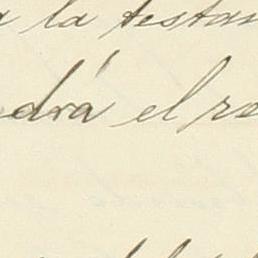 a la testam
drá el re